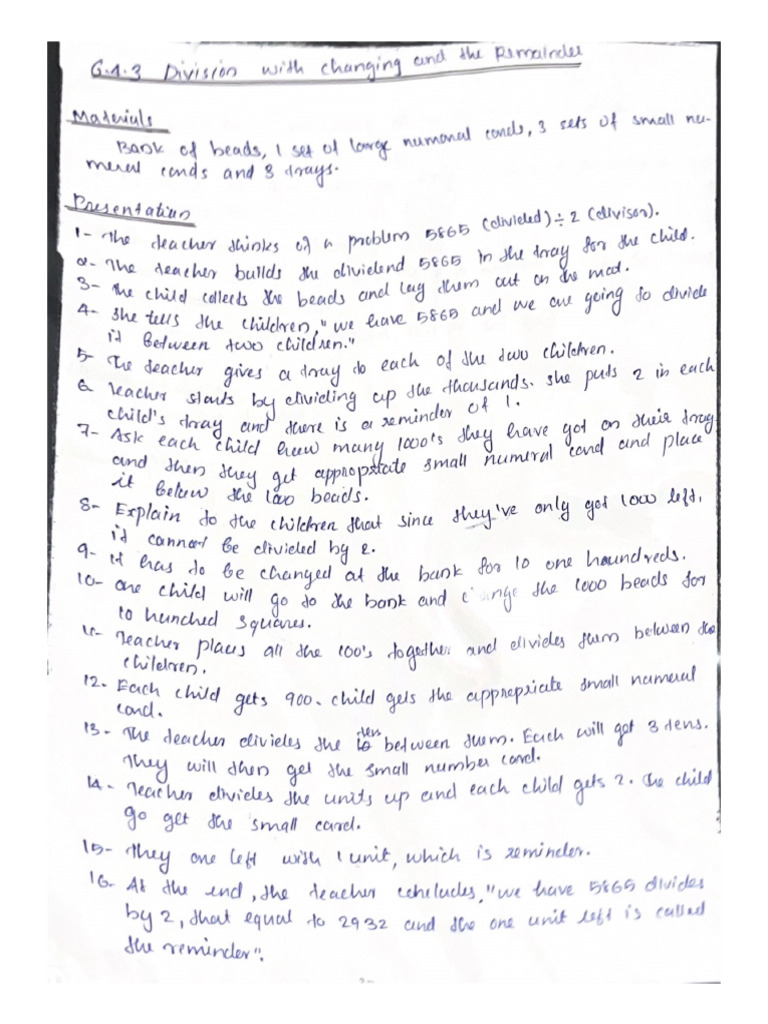 6.4.3 Division with changing and the Remainder
Materials
Bank of beads, 1 set of large numeral cards, 3 sets of small nu-
meral cards and 3 trays.
Presentation
1- The teacher thinks of a problem 5865 (divided) ÷ 2 (divisor).
2- The teacher builds the dividend 5865 in the tray for the child.
3- The child collects the beads and lay them out on the mat.
4- She tells the children, "we have 5865 and we are going to divide
it between two children."
5- The teacher gives a tray to each of the two children.
6 Teacher starts by dividing up the thousands. She puts 2 in each
child's tray and there is a reminder of 1.
7- Ask each child how many 1000's they have got on their tray
and then they get appropriate small numeral card and place
it below the 1000 beads.
8- Explain to the children that since they've only got 1000 left,
it cannot be divided by 2.
9- It has to be changed at the bank for 10 one haundreds.
10- One child will go to the bank and change the 1000 beads for
10 hundred squares.
11- Teacher places all the 100's together and divides them between the
children.
12- Each child gets 900. child gets the appropriate small numeral
card.
13- The teacher divides the tens between them. Each will got 3 tens.
They will then get the small number card.
14- Teacher divides the units up and each child gets 2. The child
go get the small card.
15- They are left with 1 unit, which is reminder.
16- At the end, the teacher concludes, "we have 5865 divides
by 2, that equal to 2932 and the one unit left is called
the reminder".